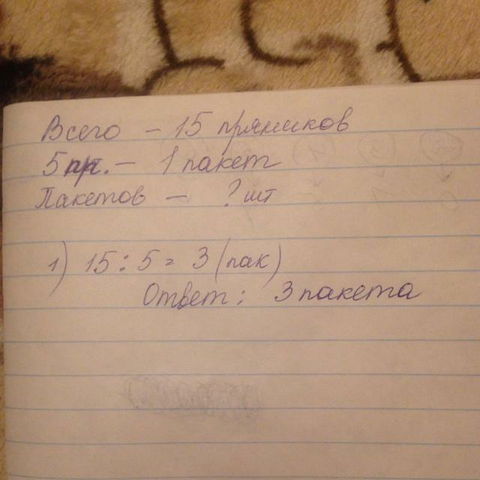 Всего – 15 пряников
5 пр. – 1 пакет
Пакетов – ? шт
1) 15 : 5 = 3 (пак)
Ответ: 3 пакета